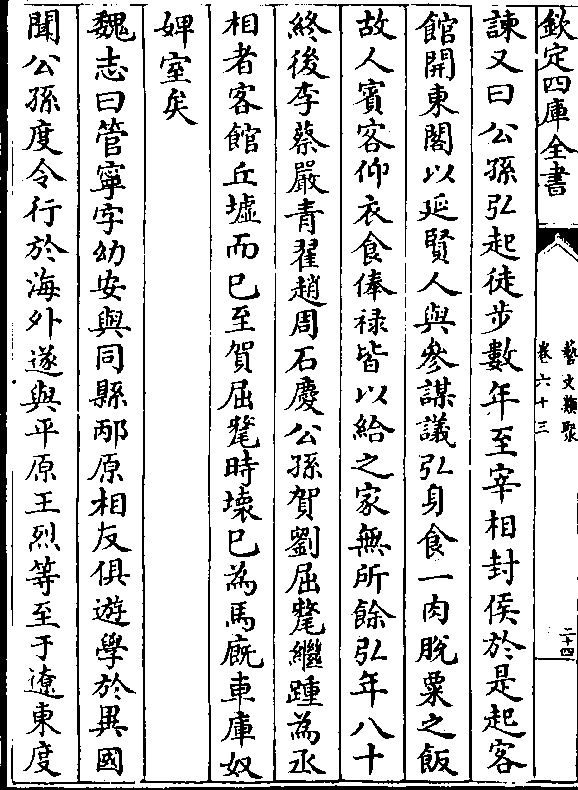 欽定四庫全書
藝文類聚
卷六十三
二十四
諫又曰公孫弘起徒步數年至宰相封侯於是起客
館開東閣以延賢人與參謀議弘身食一肉脫粟之飯
故人賓客仰衣食俸祿皆以給之家無所餘弘年八十
終後李蔡嚴青翟趙周石慶公孫賀劉屈氂繼踵為丞
相者客館丘墟而已至賀屈氂時壊已為馬廐車庫奴
婢室矣
魏志曰管寧字幼安與同縣邴原相友俱遊學於異國
聞公孫度令行於海外遂與平原王烈等至于遼東度